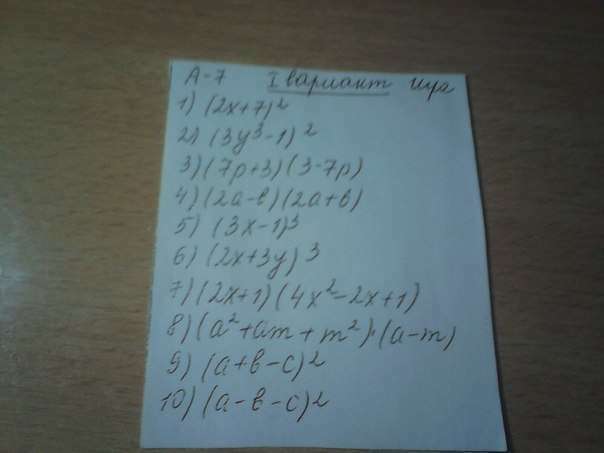 А-7 I вариант
1) (2x+7)²
2) (3y³-1)²
3) (7p+3)(3-7p)
4) (2a-b)(2a+b)
5) (3x-1)³
6) (2x+3y)³
7) (2x+1)(4x²-2x+1)
8) (a²+am+m²)·(a-m)
9) (a+b-c)²
10) (a-b-c)²